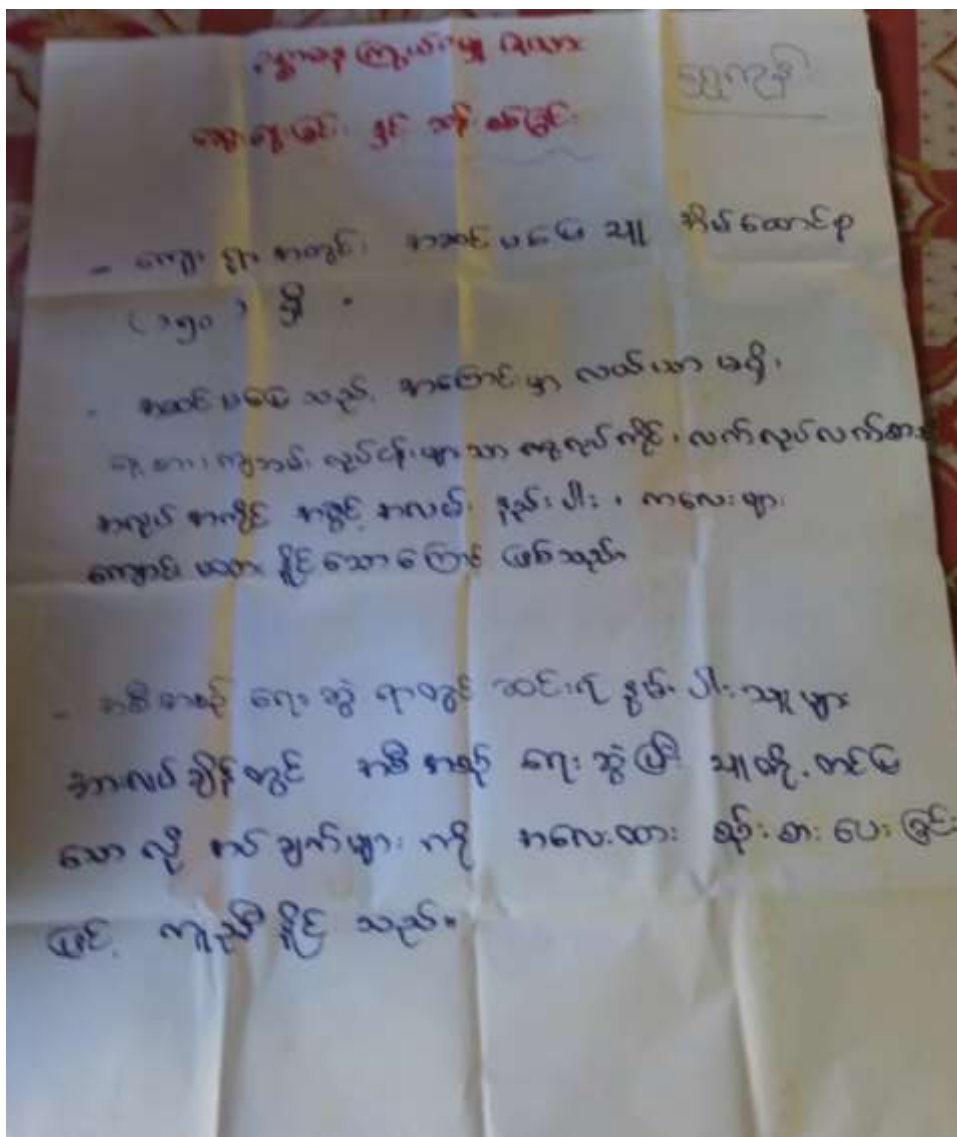 ရွှေကုန်း
ဆွေးနွေးခြင်း နှင့် သုံးသပ်ခြင်း
- ကျေးရွာအတွင်း အဆင်မပြေသူ အိမ်ထောင်စု
(၁၅၀) ရှိ ။
- အဆင်မပြေသည့် အကြောင်းမှာ လယ်ယာမရှိ၊
ကျဘမ်းလုပ်ငန်းများသာ လုပ်ကိုင်၊ လက်လုပ်လက်စား
အလုပ်အကိုင် အခွင့်အလမ်း နည်းပါး၊ ကလေးများ
ကျောင်းမထားနိုင်သောကြောင့် ဖြစ်သည်။
- အစီအစဉ် ရေးဆွဲရာတွင် ဆင်းရဲနွမ်းပါးသူများ
အားလပ်ချိန်တွင် အစီအစဉ် ရေးဆွဲပြီး သူတို့တင်ပြ
သော လိုအပ်ချက်များကို အလေးထား စဉ်းစားပေးခြင်း
ဖြင့် ကူညီနိုင်သည်။